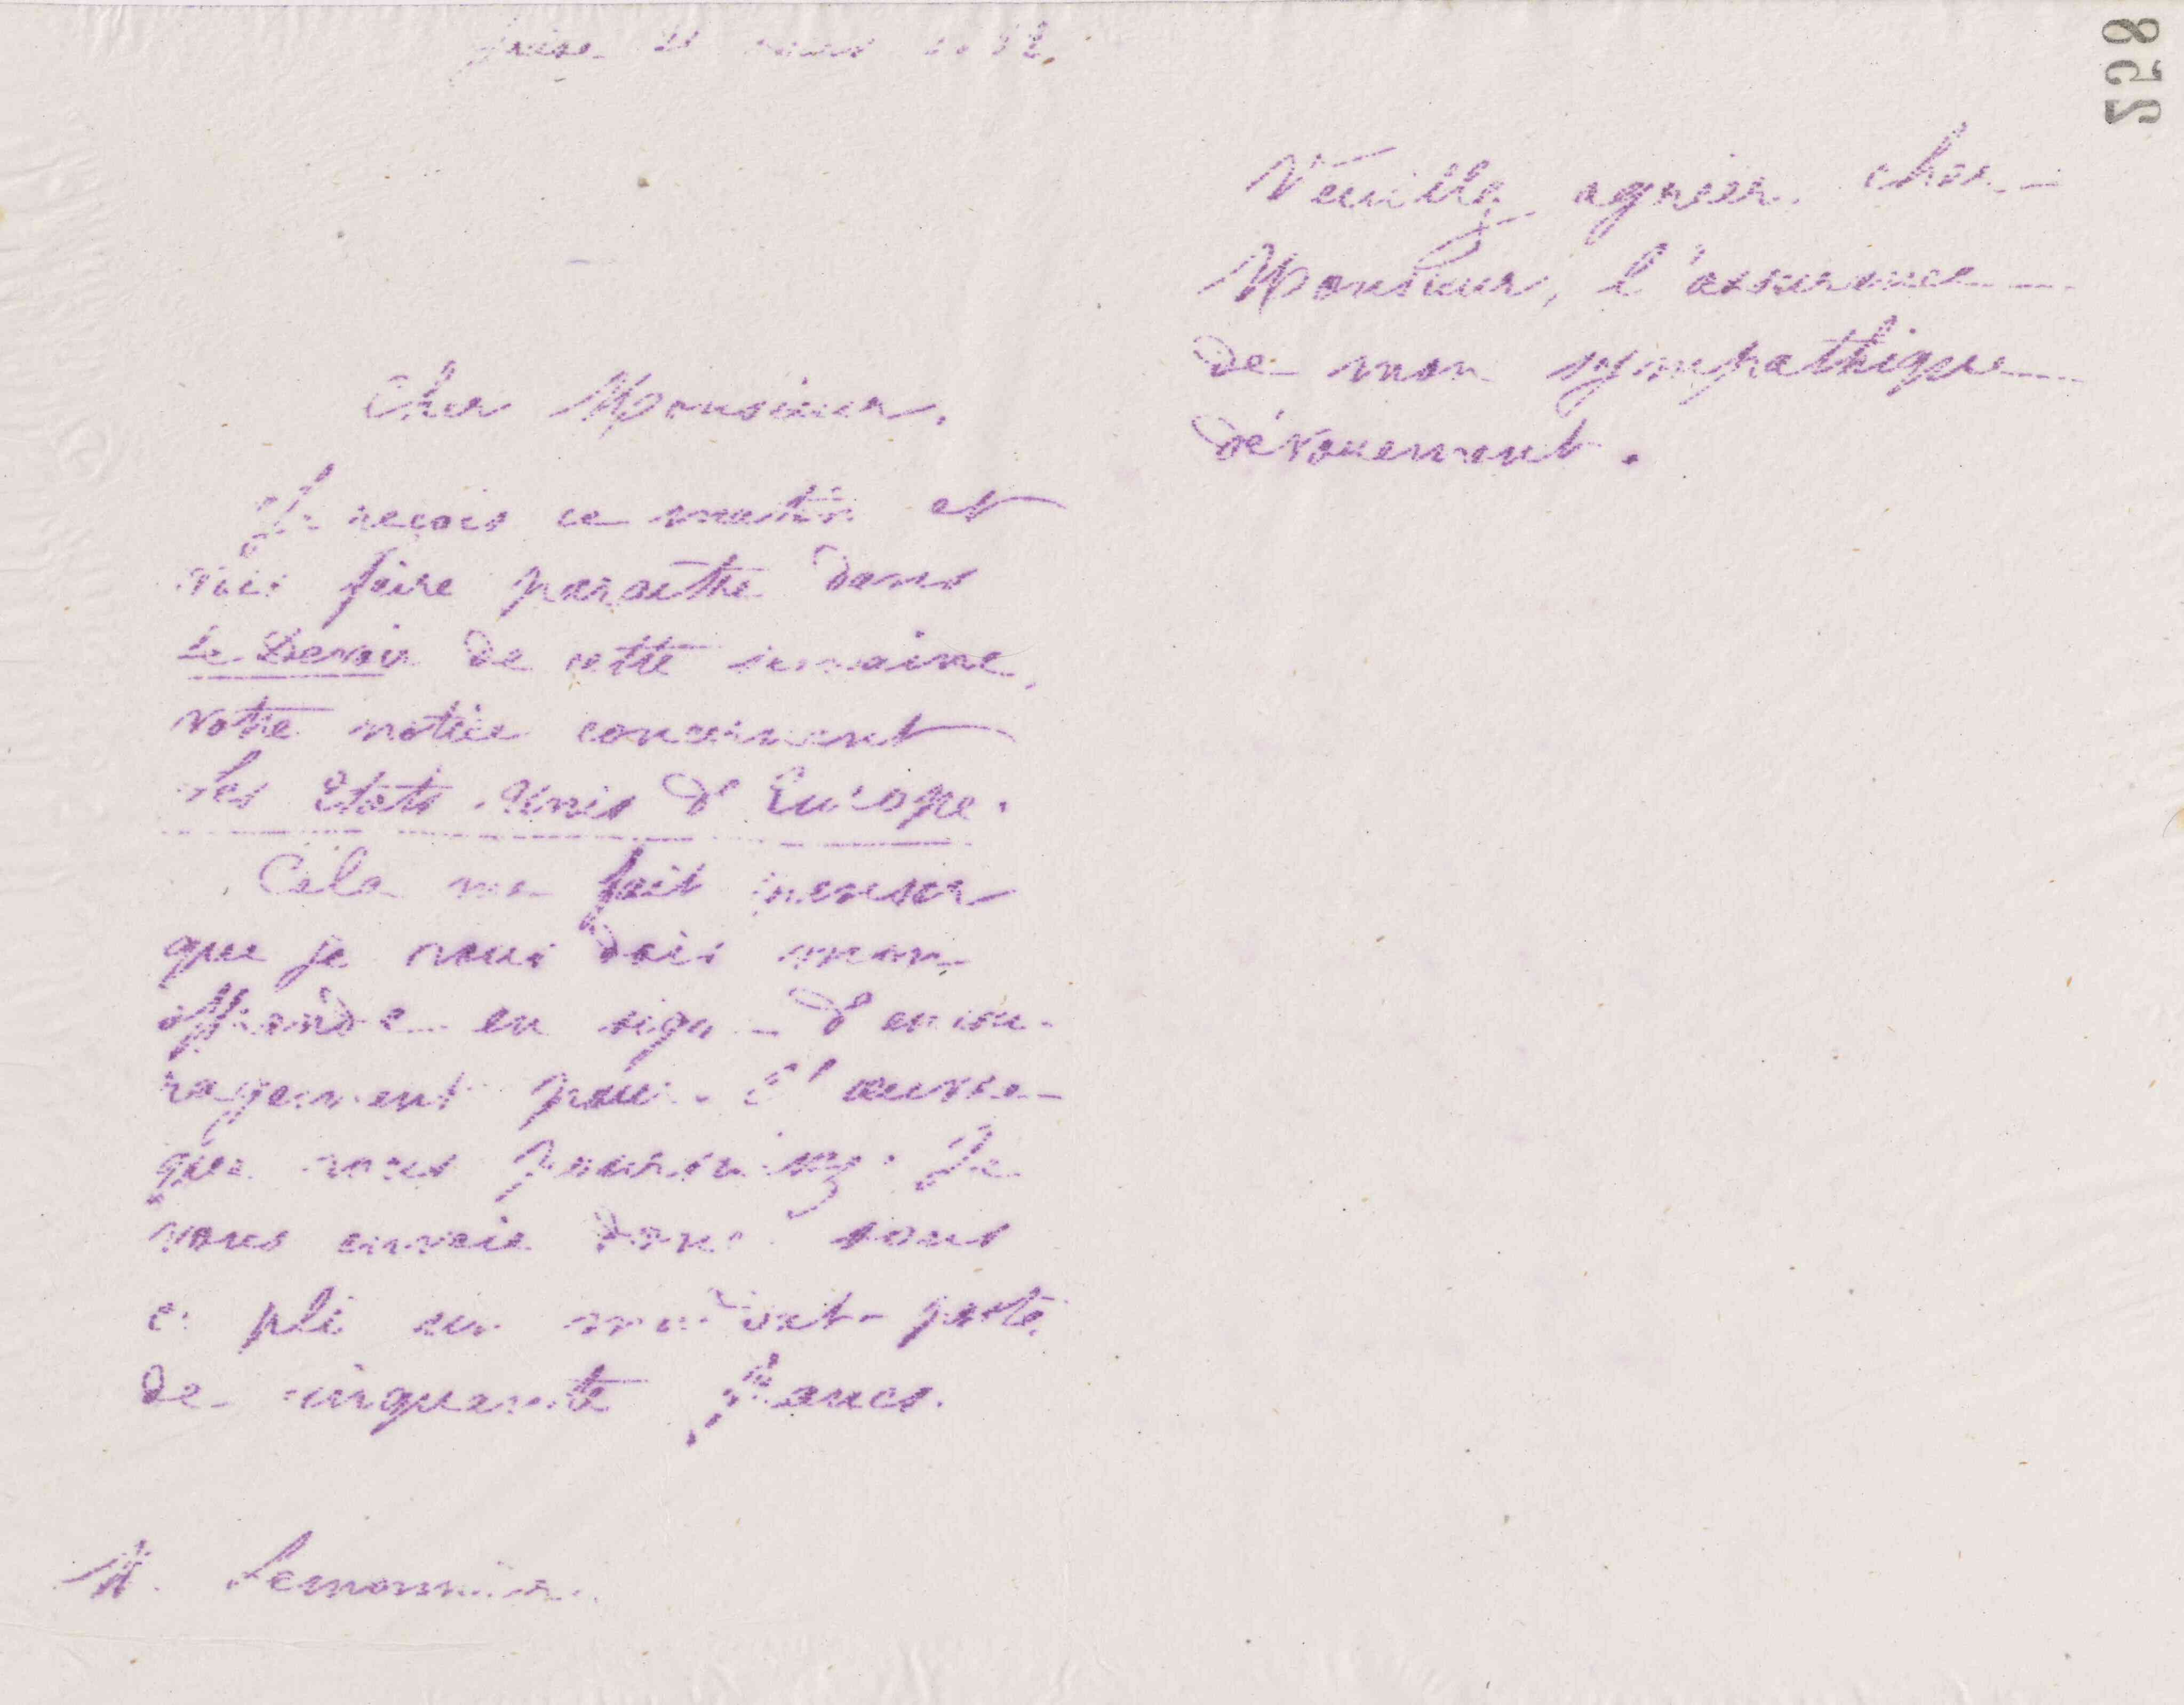 Guise 21 mars
Cher Monsieur,
Je reçois ce matin et
vais faire paraître dans
Le Devoir de cette semaine,
votre notice concernant
Les Etats-Unis d'Europe.
Cela me fait penser
que je vous dois mon
offrande en signe d'encou-
ragement pour l'œuvre
que vous poursuivez. Je
vous envoie donc sous
ce pli un mandat-poste
de cinquante francs.
M. Lemonnier
Veuillez agréer, cher
Monsieur, l'assurance
de mon sympathique
dévouement.
258